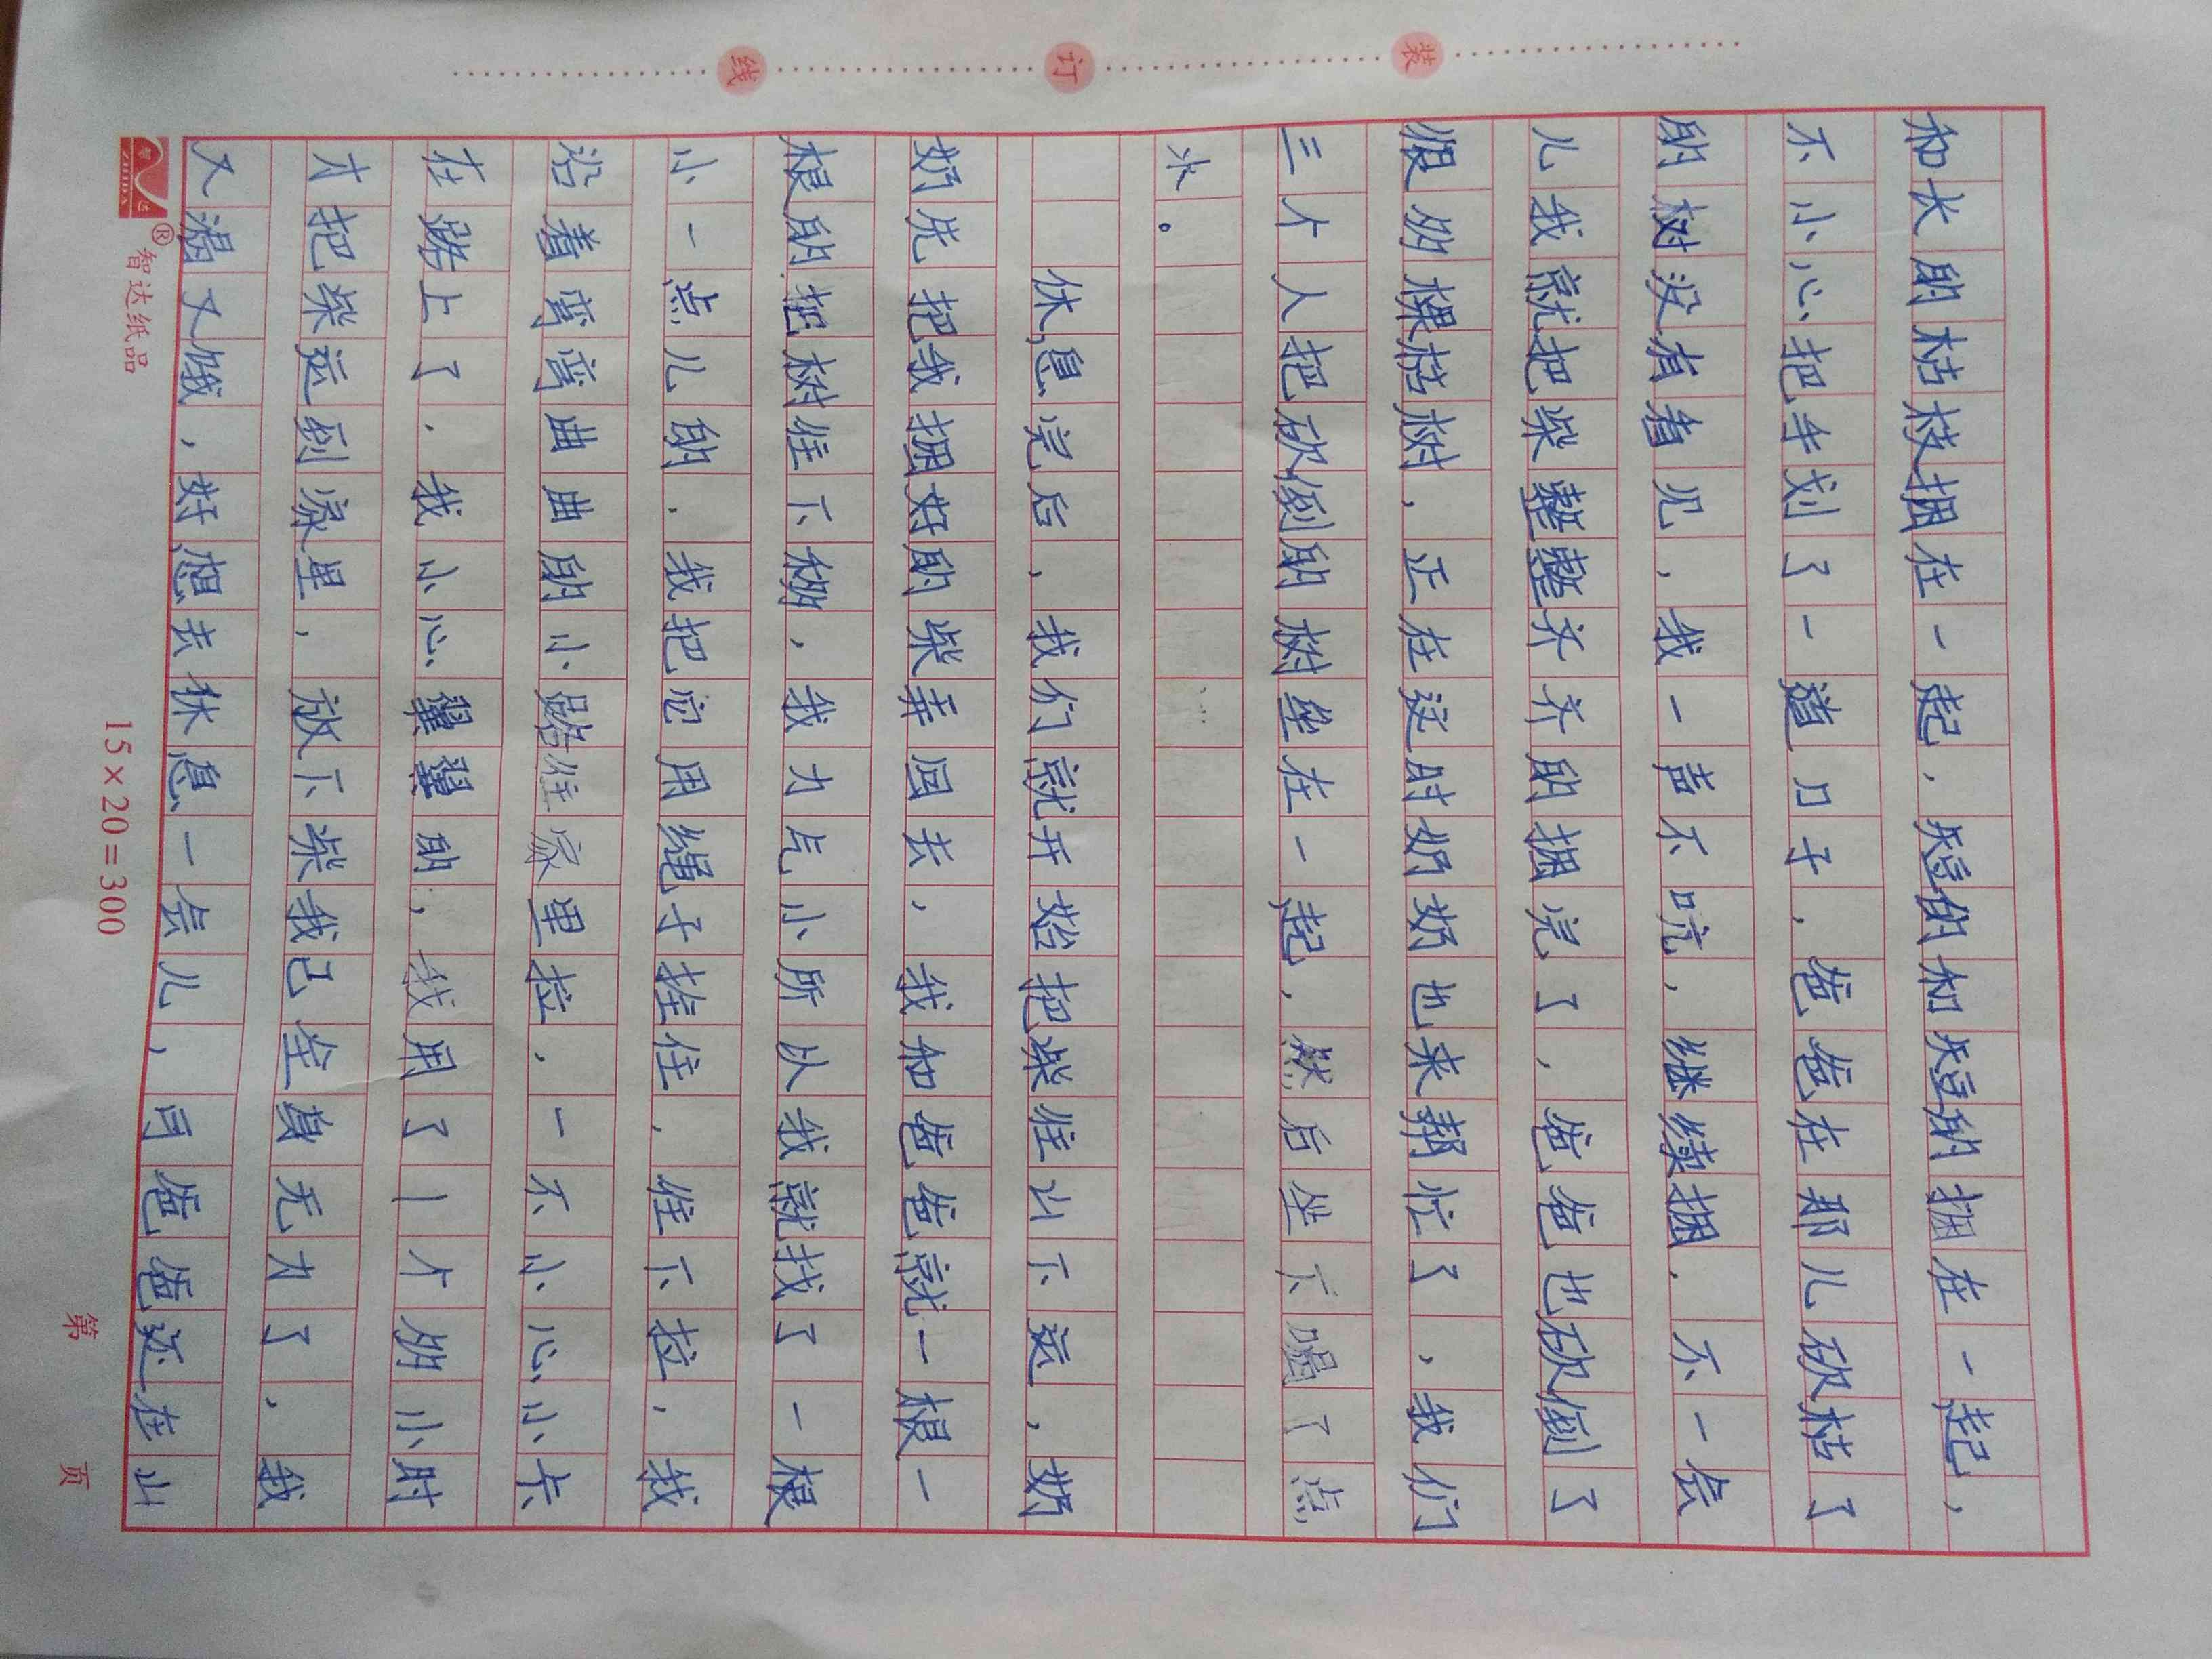 装
订
线
和长的枯枝捆在一起，短的和短的捆在一起，
不小心把手划了一道口子，爸爸在那儿砍枯了
的树没有看见，我一声不吭，继续捆，不一会
儿我就把柴整整齐齐的捆完了，爸爸也砍倒了
很多棵枯树，正在这时奶奶也来帮忙了，我们
三个人把砍倒的树坐在一起，然后坐下喝了点
水。
休息完后，我们就开始把柴往山下运，奶
奶先把我捆好的柴弄回去，我和爸爸就一根一
根的把树往下梭，我力气小所以我就找了一根
小一点儿的，我把它用绳子拴住，往下拉，我
沿着弯弯曲曲的小路往家里拉，一不小心小卡
在路上了，我小心翼翼的，我用了1个多小时
才把柴运到家里，放下柴我已全身无力了，我
又渴又饿，好想去休息一会儿，可爸爸还在山
智达
ZHIDA
®
智达纸品
15×20=300
第 页